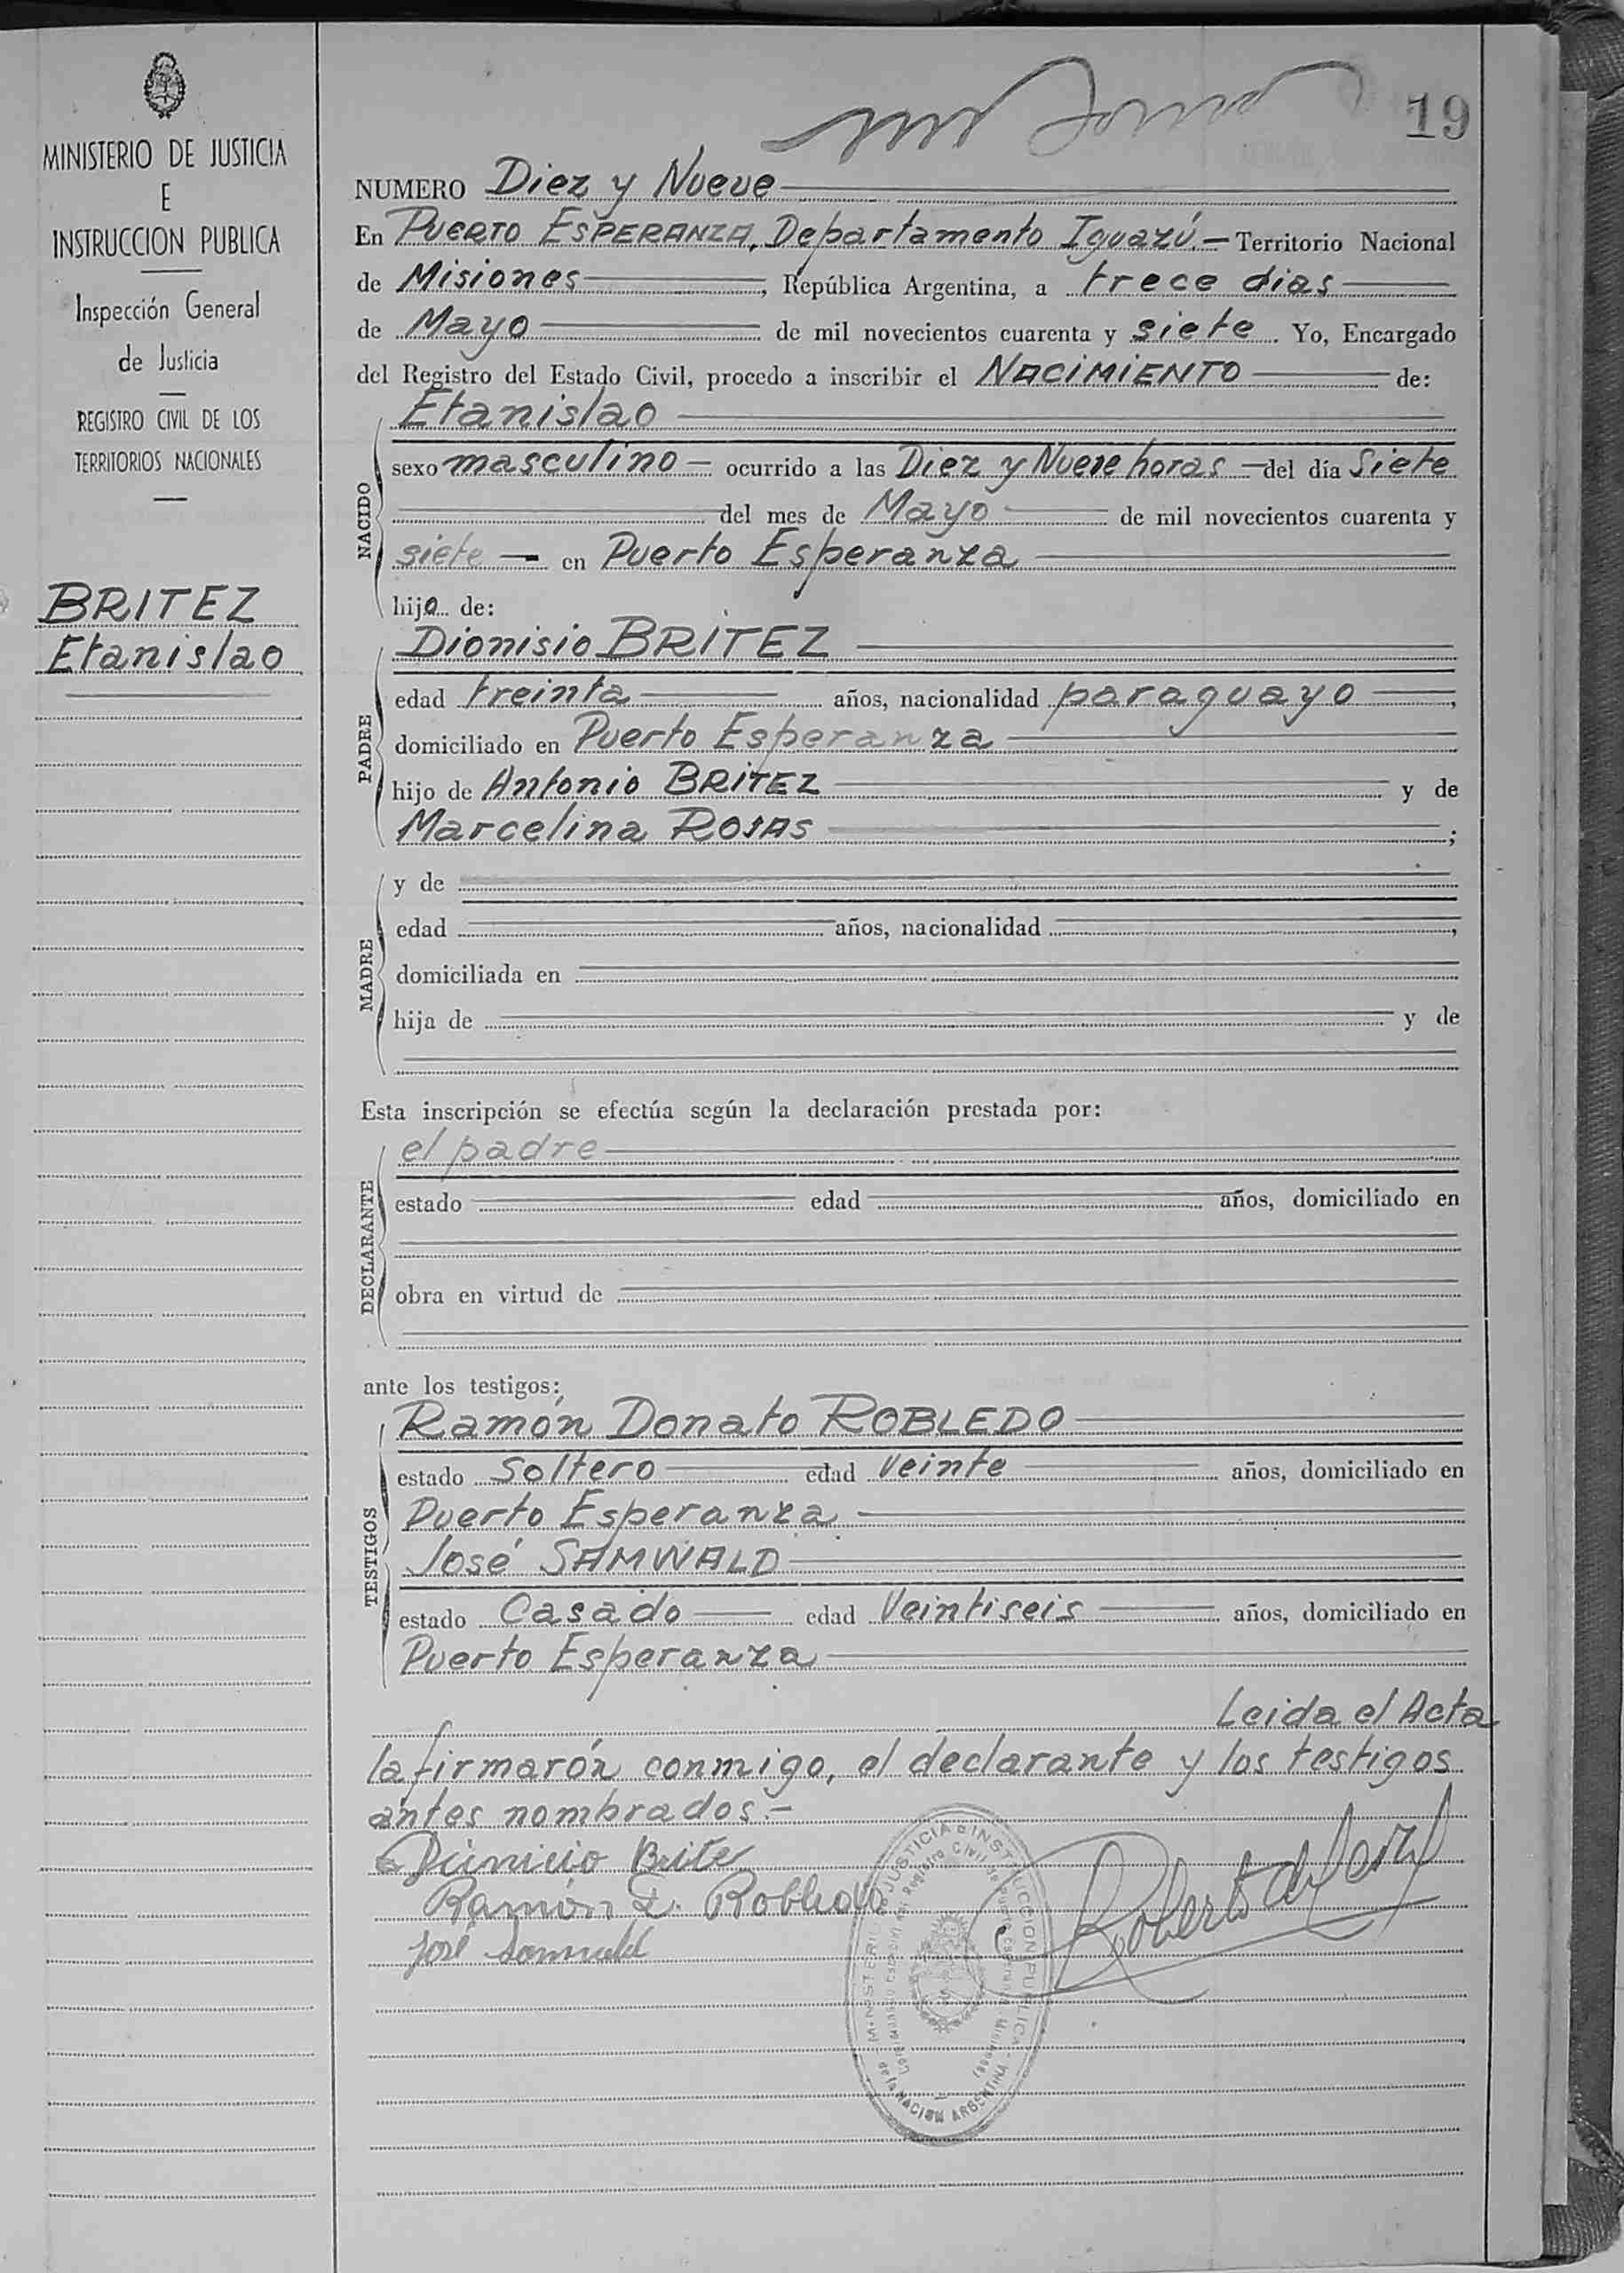 MINISTERIO DE JUSTICIA
E
INSTRUCCION PUBLICA
Inspección General
de Justicia
REGISTRO CIVIL DE LOS
TERRITORIOS NACIONALES
BRITEZ
Etanislao
19
NUMERO Diez y Nueve
En PUERTO ESPERANZA, Departamento Iguazú.— Territorio Nacional
de Misiones, República Argentina, a trece dias
de Mayo de mil novecientos cuarenta y siete. Yo, Encargado
del Registro del Estado Civil, procedo a inscribir el NACIMIENTO de:
Etanislao
NACIDO
sexo masculino — ocurrido a las Diez y Nueve horas — del día Siete
del mes de Mayo de mil novecientos cuarenta y
siete — en Puerto Esperanza
hijo de:
Dionisio BRITEZ
PADRE
edad treinta años, nacionalidad paraguayo,
domiciliado en Puerto Esperanza
hijo de Antonio BRITEZ y de
Marcelina ROJAS;
y de
MADRE
edad años, nacionalidad,
domiciliada en
hija de y de
Esta inscripción se efectúa según la declaración prestada por:
el padre
DECLARANTE
estado edad años, domiciliado en
obra en virtud de
ante los testigos:
Ramón Donato ROBLEDO
TESTIGOS
estado Soltero edad Veinte años, domiciliado en
Puerto Esperanza
José SAMWALD
estado Casado edad Veintiseis años, domiciliado en
Puerto Esperanza
Leida el Acta
la firmarón conmigo, el declarante y los testigos
antes nombrados.—
Brites
Ramón D. Robledo
José Samwald
Roberto
MINISTERIO DE JUSTICIA e INSTRUCCION PUBLICA
de la NACION ARGENTINA